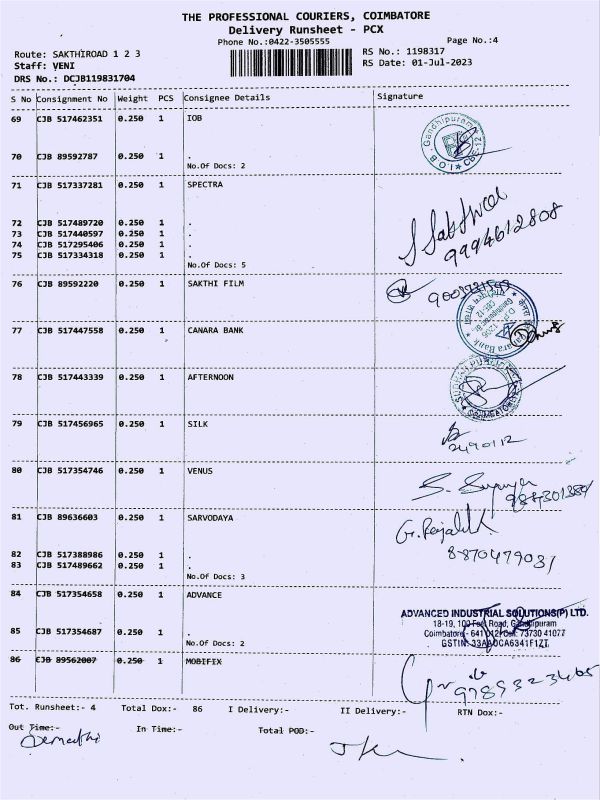 THE PROFESSIONAL COURIERS, COIMBATORE
Delivery Runsheet - PCX
Phone No.:0422-3505555
Page No.:4
Route: SAKTHIROAD 1 2 3
RS No.: 1198317
Staff: VENI
RS Date: 01-Jul-2023
DRS No.: DCJB119831704
S No Consignment No Weight PCS Consignee Details Signature
69 CJB 517462351 0.250 1 IOB
Gandhipuram
70 CJB 89592787 0.250 1 .
No.Of Docs: 2
71 CJB 517337281 0.250 1 SPECTRA
72 CJB 517489720 0.250 1 .
73 CJB 517440597 0.250 1 .
74 CJB 517295406 0.250 1 .
75 CJB 517334318 0.250 1 .
9994612808
No.Of Docs: 5
76 CJB 89592220 0.250 1 SAKTHI FILM
77 CJB 517447558 0.250 1 CANARA BANK
78 CJB 517443339 0.250 1 AFTERNOON
COIMBATORE
79 CJB 517456965 0.250 1 SILK
80 CJB 517354746 0.250 1 VENUS
81 CJB 89636603 0.250 1 SARVODAYA
82 CJB 517388986 0.250 1 .
83 CJB 517489662 0.250 1 .
No.Of Docs: 3
84 CJB 517354658 0.250 1 ADVANCE
ADVANCED INDUSTRIAL SOLUTIONS(P) LTD.
18-19, 100 Feet Road, Gandhipuram
85 CJB 517354687 0.250 1 .
Coimbatore - 641 012, Cell: 73730 41077
No.Of Docs: 2
GSTIN: 33AAOCA6341F1ZT
86 CJB 89562007 0.250 1 MOBIFIX
9789323465
Tot. Runsheet:- 4 Total Dox:- 86 I Delivery:- II Delivery:- RTN Dox:-
Out Time:- In Time:- Total POD:-